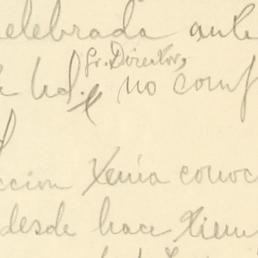 celebrada ante
Sr. Director,
Ud. no conf
ccion tenía conoc
desde hace tiem